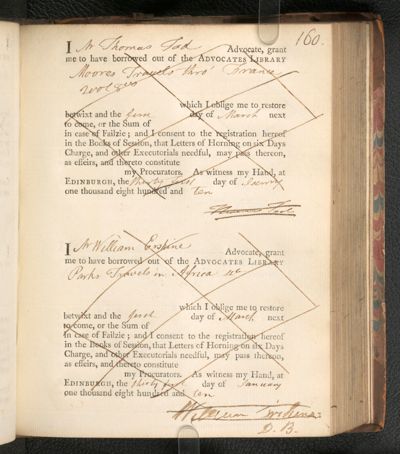 160.
I Mr Thomas Tod Advocate, grant
me to have borrowed out of the ADVOCATES LIBRARY
Moores Travels thro' France
2 vol 8vo
which I oblige me to restore
betwixt and the first day of March next
to come, or the Sum of
in case of Failzie; and I consent to the registration hereof
in the Books of Session, that Letters of Horning on six Days
Charge, and other Executorials needful, may pass thereon,
as effeirs, and thereto constitute
my Procurators. As witness my Hand, at
EDINBURGH, the thirty first day of January
one thousand eight hundred and ten
Thomas Tod
I Mr William Erskine Advocate, grant
me to have borrowed out of the ADVOCATES LIBRARY
Parks Travels in Africa 4to
which I oblige me to restore
betwixt and the first day of March next
to come, or the Sum of
in case of Failzie; and I consent to the registration hereof
in the Books of Session, that Letters of Horning on six Days
Charge, and other Executorials needful, may pass thereon,
as effeirs, and thereto constitute
my Procurators. As witness my Hand, at
EDINBURGH, the thirty first day of January
one thousand eight hundred and ten
William Erskine
D. B.